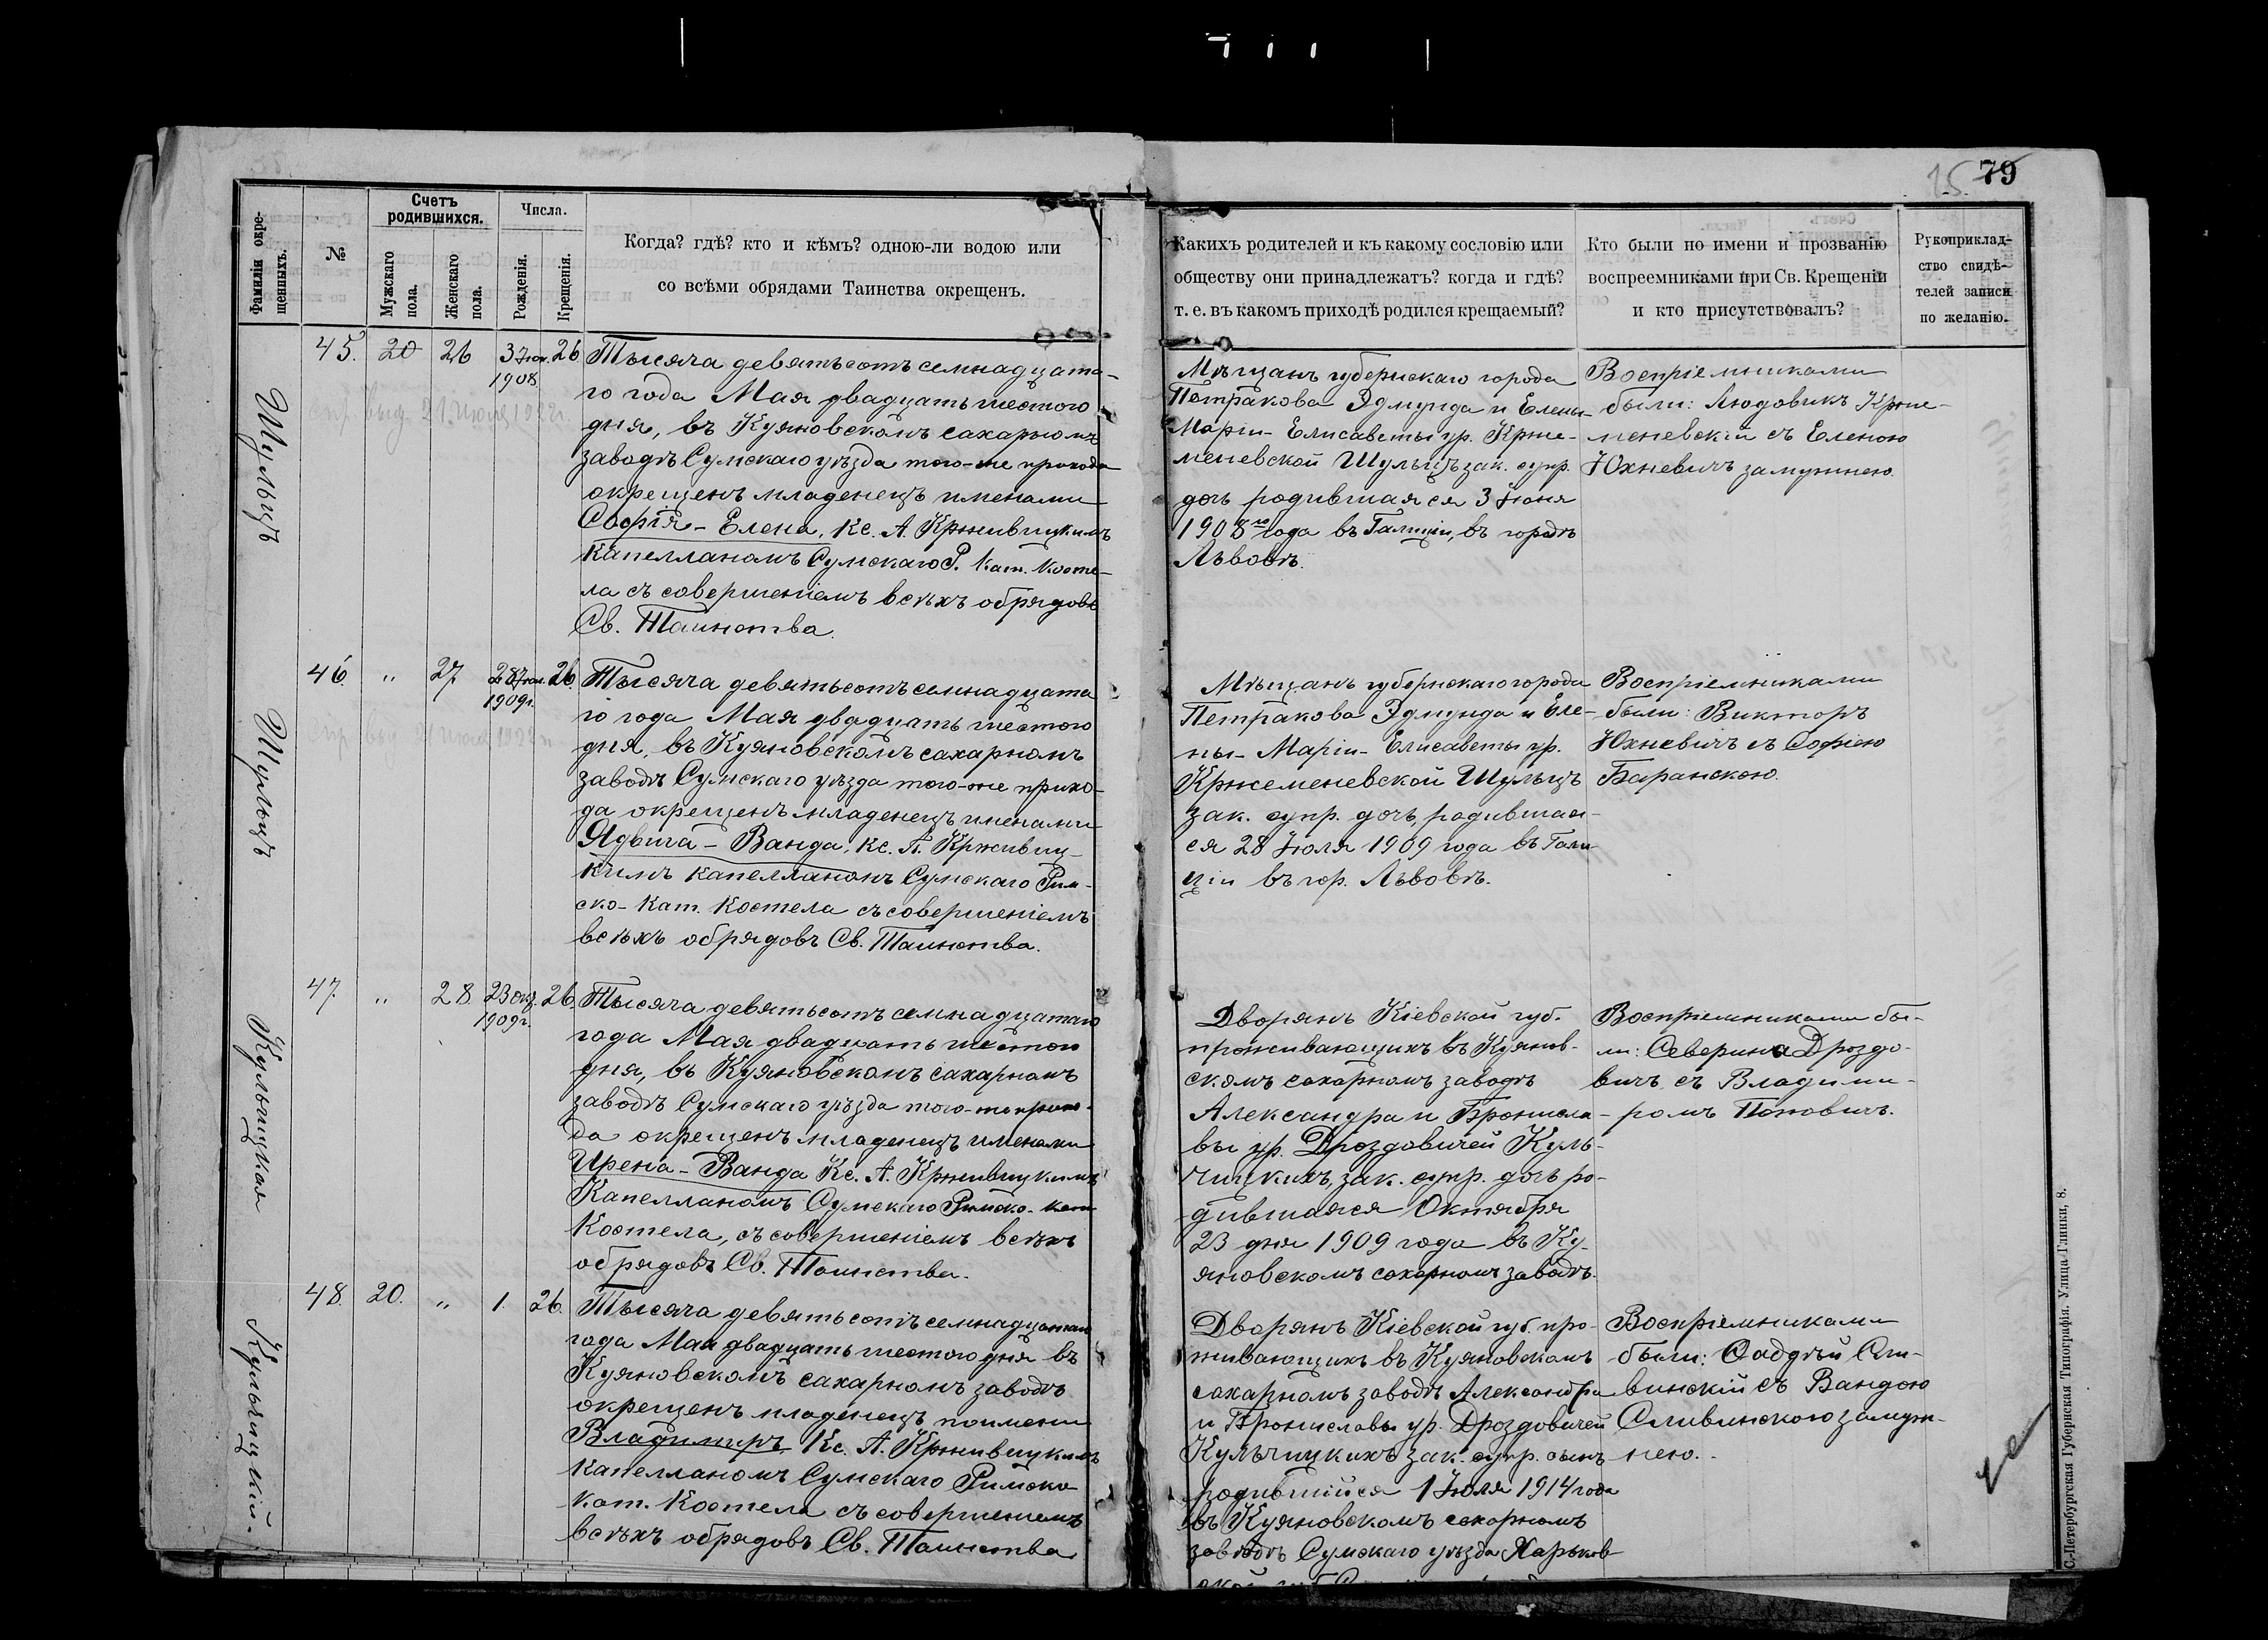 79
15
Фамиліи окре-
щенныхъ.
№
Счетъ
родившихся.
Мужскаго
пола.
Женскаго
пола.
Числа.
Рожденія.
Крещенія.
Когда? гдѣ? кто и кѣмъ? одною-ли водою или
со всѣми обрядами Таинства окрещенъ.
Какихъ родителей и къ какому сословію или
обществу они принадлежатъ? когда и гдѣ?
т. е. въ какомъ приходѣ родился крещаемый?
Кто были по имени и прозванію
воспреемниками при Св. Крещеніи
и кто присутствовалъ?
Рукоприклад-
ство свидѣ-
телей записи
по желанію.
Шульцъ
45. 20 26 3 Іюн. 26
1908
Тысяча девятьсотъ семнадцата-
го года Мая двадцать шестого
дня, въ Куяновскомъ сахарномъ
заводѣ Сумскаго уѣзда того-же прихода
окрещенъ младенецъ именами
Софія - Елена, Кс. А. Крживицкимъ
Капелланомъ Сумскаго Р. Кат. Косте-
ла съ совершеніемъ всѣхъ обрядовъ
Св. Таинства.
Мѣщанъ губернскаго города
Петракова Эдмунда и Елены-
Маріи - Елисаветы ур. Крже-
меневской Шульцъ зак. супр.
дочь родившаяся 3 Іюня
1908го года въ Галиціи, въ городѣ
Львовѣ.
Воспріемниками
были: Людовикъ Крже-
меневскій съ Еленою
Юхневичъ замужнею.
Шульцъ
46. " 27 28 Іюл. 26.
1909г.
Тысяча девятьсотъ семнадцата
го года Мая двадцать шестого
дня, въ Куяновскомъ сахарномъ
заводѣ Сумскаго уѣзда того-же прихо-
да окрещенъ младенецъ именами
Ядвига - Ванда, Кс. А. Крживиц-
кимъ Капелланомъ Сумскаго Рим-
ско- Кат. Костела съ совершеніемъ
всѣхъ обрядовъ Св. Таинства.
Мѣщанъ губернскаго города
Петракова Эдмунда и Еле-
ны - Маріи - Елисаветы ур.
Кржеменевской Шульцъ
зак. супр. дочь, родившая-
ся 28 Іюля 1909 года въ Гали-
ціи въ гор. Львовѣ.
Воспріемниками
были: Викторъ
Юхневичъ съ Софіею
Баранскою.
Кульчицкая
47. " 28. 23 Окт. 26.
1909г.
Тысяча девятьсотъ семнадцатаго
года Мая двадцать шестого
дня, въ Куяновскомъ сахарномъ
заводѣ Сумскаго уѣзда того-же прихо-
да окрещенъ младенецъ именами
Ирена - Ванда Кс. А. Крживицкимъ
Капелланомъ Сумскаго Римско-Кат
Костела, съ совершеніемъ всѣхъ
обрядовъ Св. Таинства.
Дворянъ Кіевской губ.
проживающихъ въ Куянов-
скомъ сахарномъ заводѣ
Александра и Бронисла-
вы ур. Дроздовичей Куль-
чицкихъ, зак. супр. дочь ро-
дившаяся Октября
23 дня 1909 года въ Ку-
яновскомъ сахарномъ заводѣ.
Воспріемниками бы-
ли: Северина Дроздо-
вичъ съ Владими-
ромъ Поповичъ.
Кульчицкій.
48. 20. " 1. 26.
Тысяча девятьсотъ семнадцатаго
года Мая двадцать шестого дня въ
Куяновскомъ сахарномъ заводѣ
окрещенъ младенецъ по имени
Владимиръ Кс. А. Крживицкимъ
Капелланомъ Сумскаго Римско
Кат. Костела съ совершеніемъ
всѣхъ обрядовъ Св. Таинства
Дворянъ Кіевской губ. про-
живающихъ въ Куяновскомъ
сахарномъ заводѣ Александра
и Брониславы ур. Дроздовичей
Кульчицкихъ зак. супр. сынъ
родившійся 1 Іюля 1914 года
въ Куяновскомъ сахарномъ
заводѣ Сумскаго уѣзда Харьков-
Воспріемниками
были: Фаддѣй Сли-
винскій съ Вандою
Сливинскою замуж-
нею.
С.-Петербургская Губернская Типографія. Улица Глинки, 8.